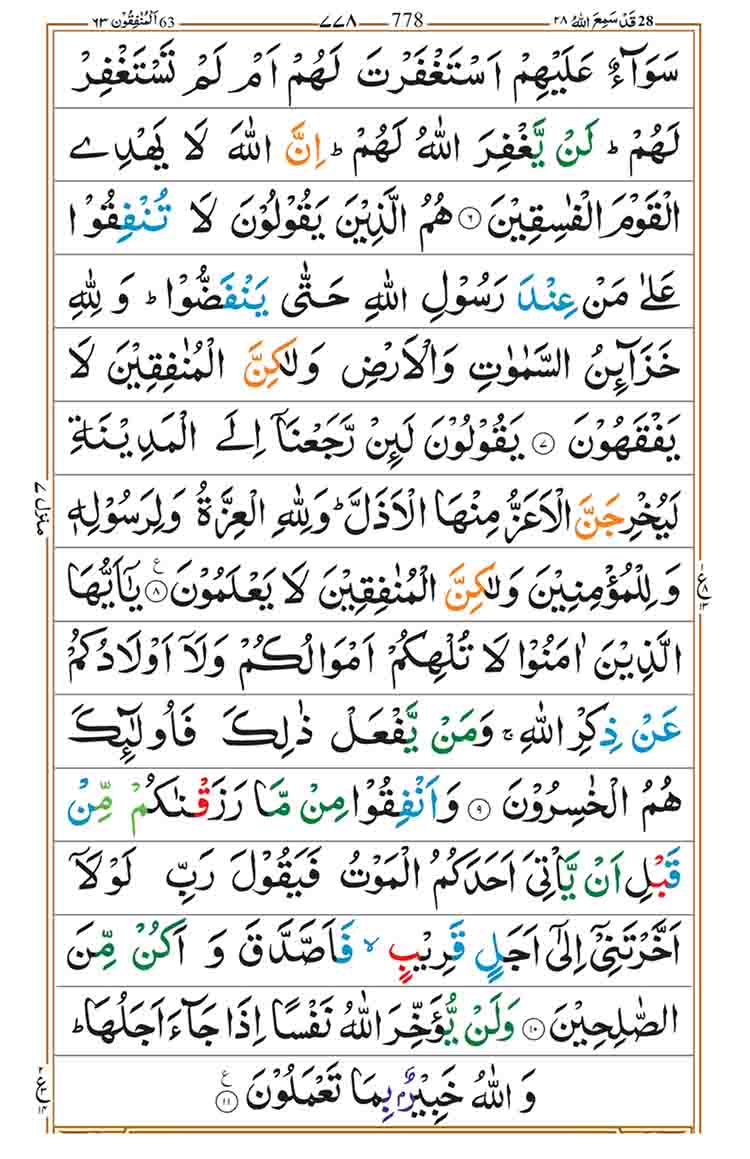 28 قَدْ سَمِعَ اللّٰهُ ٢٨
778 ٧٧٨
63 اَلْمُنٰفِقُوْن ٦٣
سَوَآءٌ عَلَيْهِمْ اَسْتَغْفَرْتَ لَهُمْ اَمْ لَمْ تَسْتَغْفِرْ
لَهُمْ ؕ لَنْ يَّغْفِرَ اللّٰهُ لَهُمْ ؕ اِنَّ اللّٰهَ لَا يَهْدِے
الْقَوْمَ الْفٰسِقِيْنَ ٦ هُمُ الَّذِيْنَ يَقُوْلُوْنَ لَا تُنْفِقُوْا
عَلٰى مَنْ عِنْدَ رَسُوْلِ اللّٰهِ حَتّٰى يَنْفَضُّوْا ؕ وَ لِلّٰهِ
خَزَآئِنُ السَّمٰوٰتِ وَالْاَرْضِ وَلٰكِنَّ الْمُنٰفِقِيْنَ لَا
يَفْقَهُوْنَ ٧ يَقُوْلُوْنَ لَئِنْ رَّجَعْنَاۤ اِلَى الْمَدِيْنَةِ
لَيُخْرِجَنَّ الْاَعَزُّ مِنْهَا الْاَذَلَّ ؕ وَلِلّٰهِ الْعِزَّةُ وَ لِرَسُوْلِهٖ
وَ لِلْمُؤْمِنِيْنَ وَلٰكِنَّ الْمُنٰفِقِيْنَ لَا يَعْلَمُوْنَ ٨ ع يٰۤاَيُّهَا
الَّذِيْنَ اٰمَنُوْا لَا تُلْهِكُمْ اَمْوَالُكُمْ وَلَاۤ اَوْلَادُكُمْ
عَنْ ذِكْرِ اللّٰهِ ۚ وَمَنْ يَّفْعَلْ ذٰلِكَ فَاُولٰٓئِكَ
هُمُ الْخٰسِرُوْنَ ٩ وَاَنْفِقُوْا مِنْ مَّا رَزَقْنٰكُمْ مِّنْ
قَبْلِ اَنْ يَّاْتِيَ اَحَدَكُمُ الْمَوْتُ فَيَقُوْلَ رَبِّ لَوْلَاۤ
اَخَّرْتَنِيْۤ اِلٰٓى اَجَلٍ قَرِيْبٍ ۙ فَاَصَّدَّقَ وَ اَكُنْ مِّنَ
الصّٰلِحِيْنَ ١٠ وَلَنْ يُّؤَخِّرَ اللّٰهُ نَفْسًا اِذَا جَآءَ اَجَلُهَا ؕ
وَ اللّٰهُ خَبِيْرٌۢ بِمَا تَعْمَلُوْنَ ١١ ع
منزل ٧